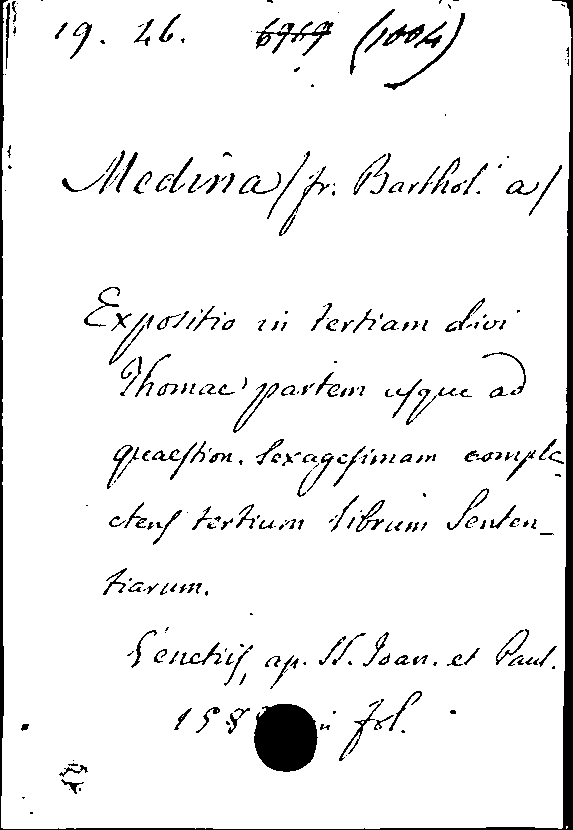 19. 26. 6969 (1004)
Medina/fr. Barthol. a/
Expositio in tertiam divi
Thomae partem usque ad
quaestion. Sexagesimam comple-
ctens tertium librum Senten-
tiarum.
Venetiis, ap. SS. Joan. et Paul.
158 in fol.